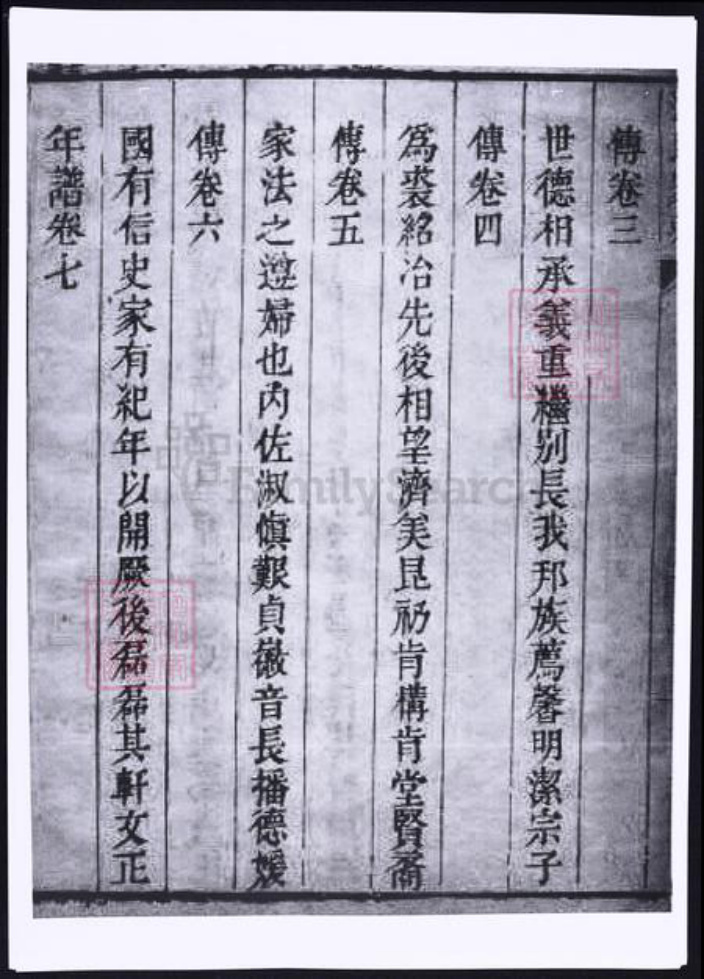 傳卷三
世德相承義重繼别長我邦族薦馨明潔宗子
傳卷四
爲裘紹冶先後相望濟美昆礽肯構肯堂賢裔
傳卷五
家法之遵婦也内佐淑慎艱貞徽音長播德媛
傳卷六
國有信史家有紀年以開厥後磊磊其軒女正
年譜卷七
FamilySearch